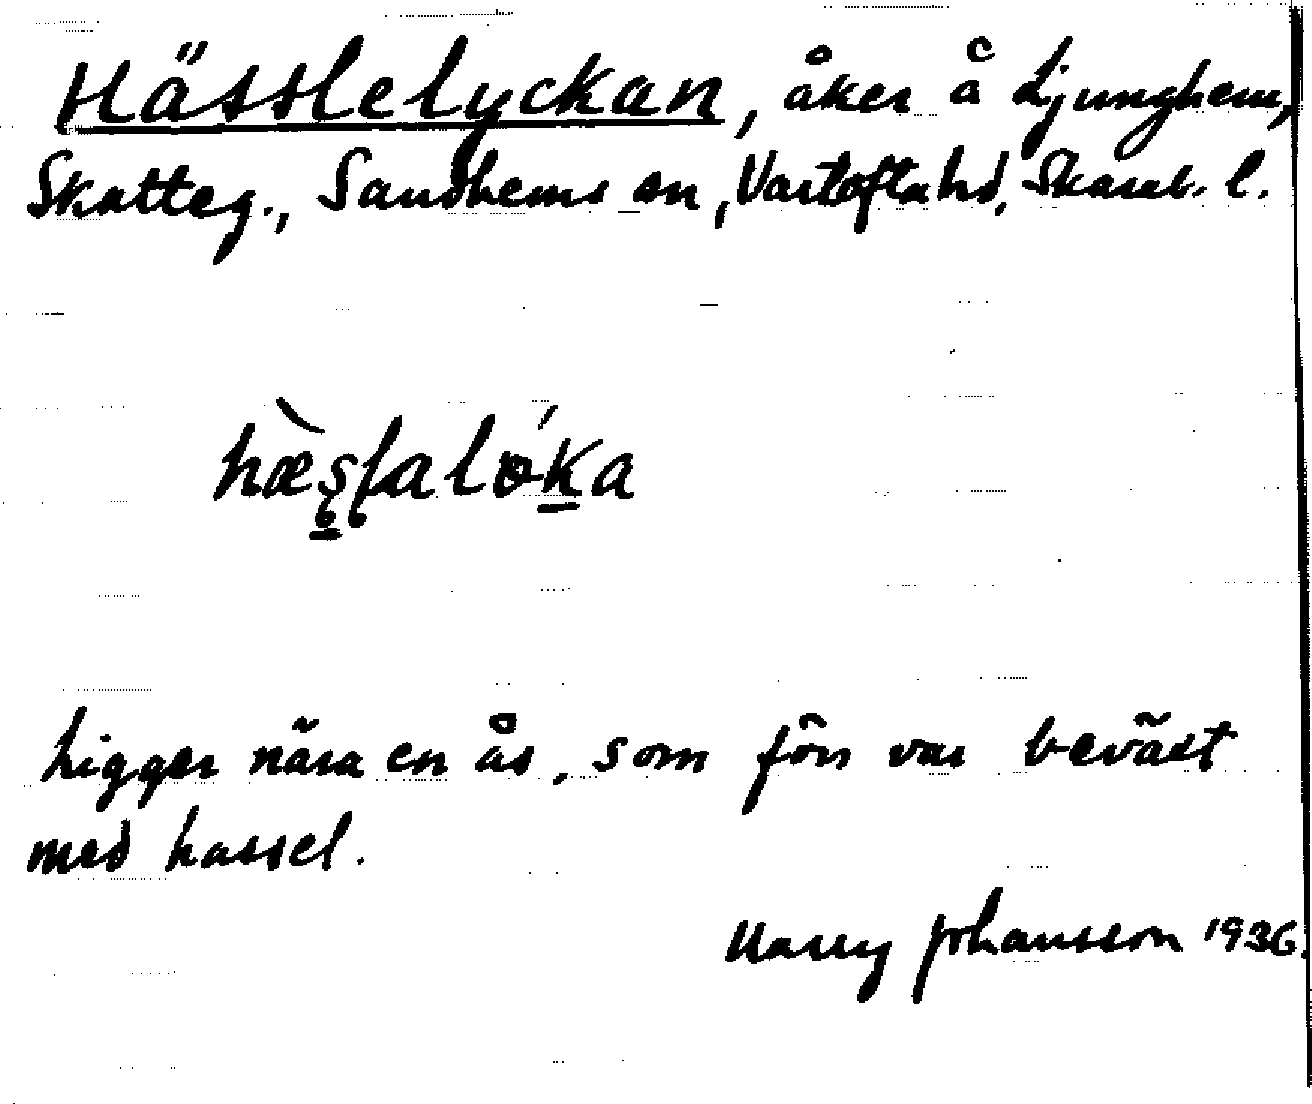 Hässlelyckan, åker å Ljunghem,
Skatteg., Sandhems sn, Vartofta hd, Skarab. l.
hæ̀s̱ḷalǿḵa
Ligger nära en ås, som förr var beväxt
med hassel.
Harry Johansson 1936.